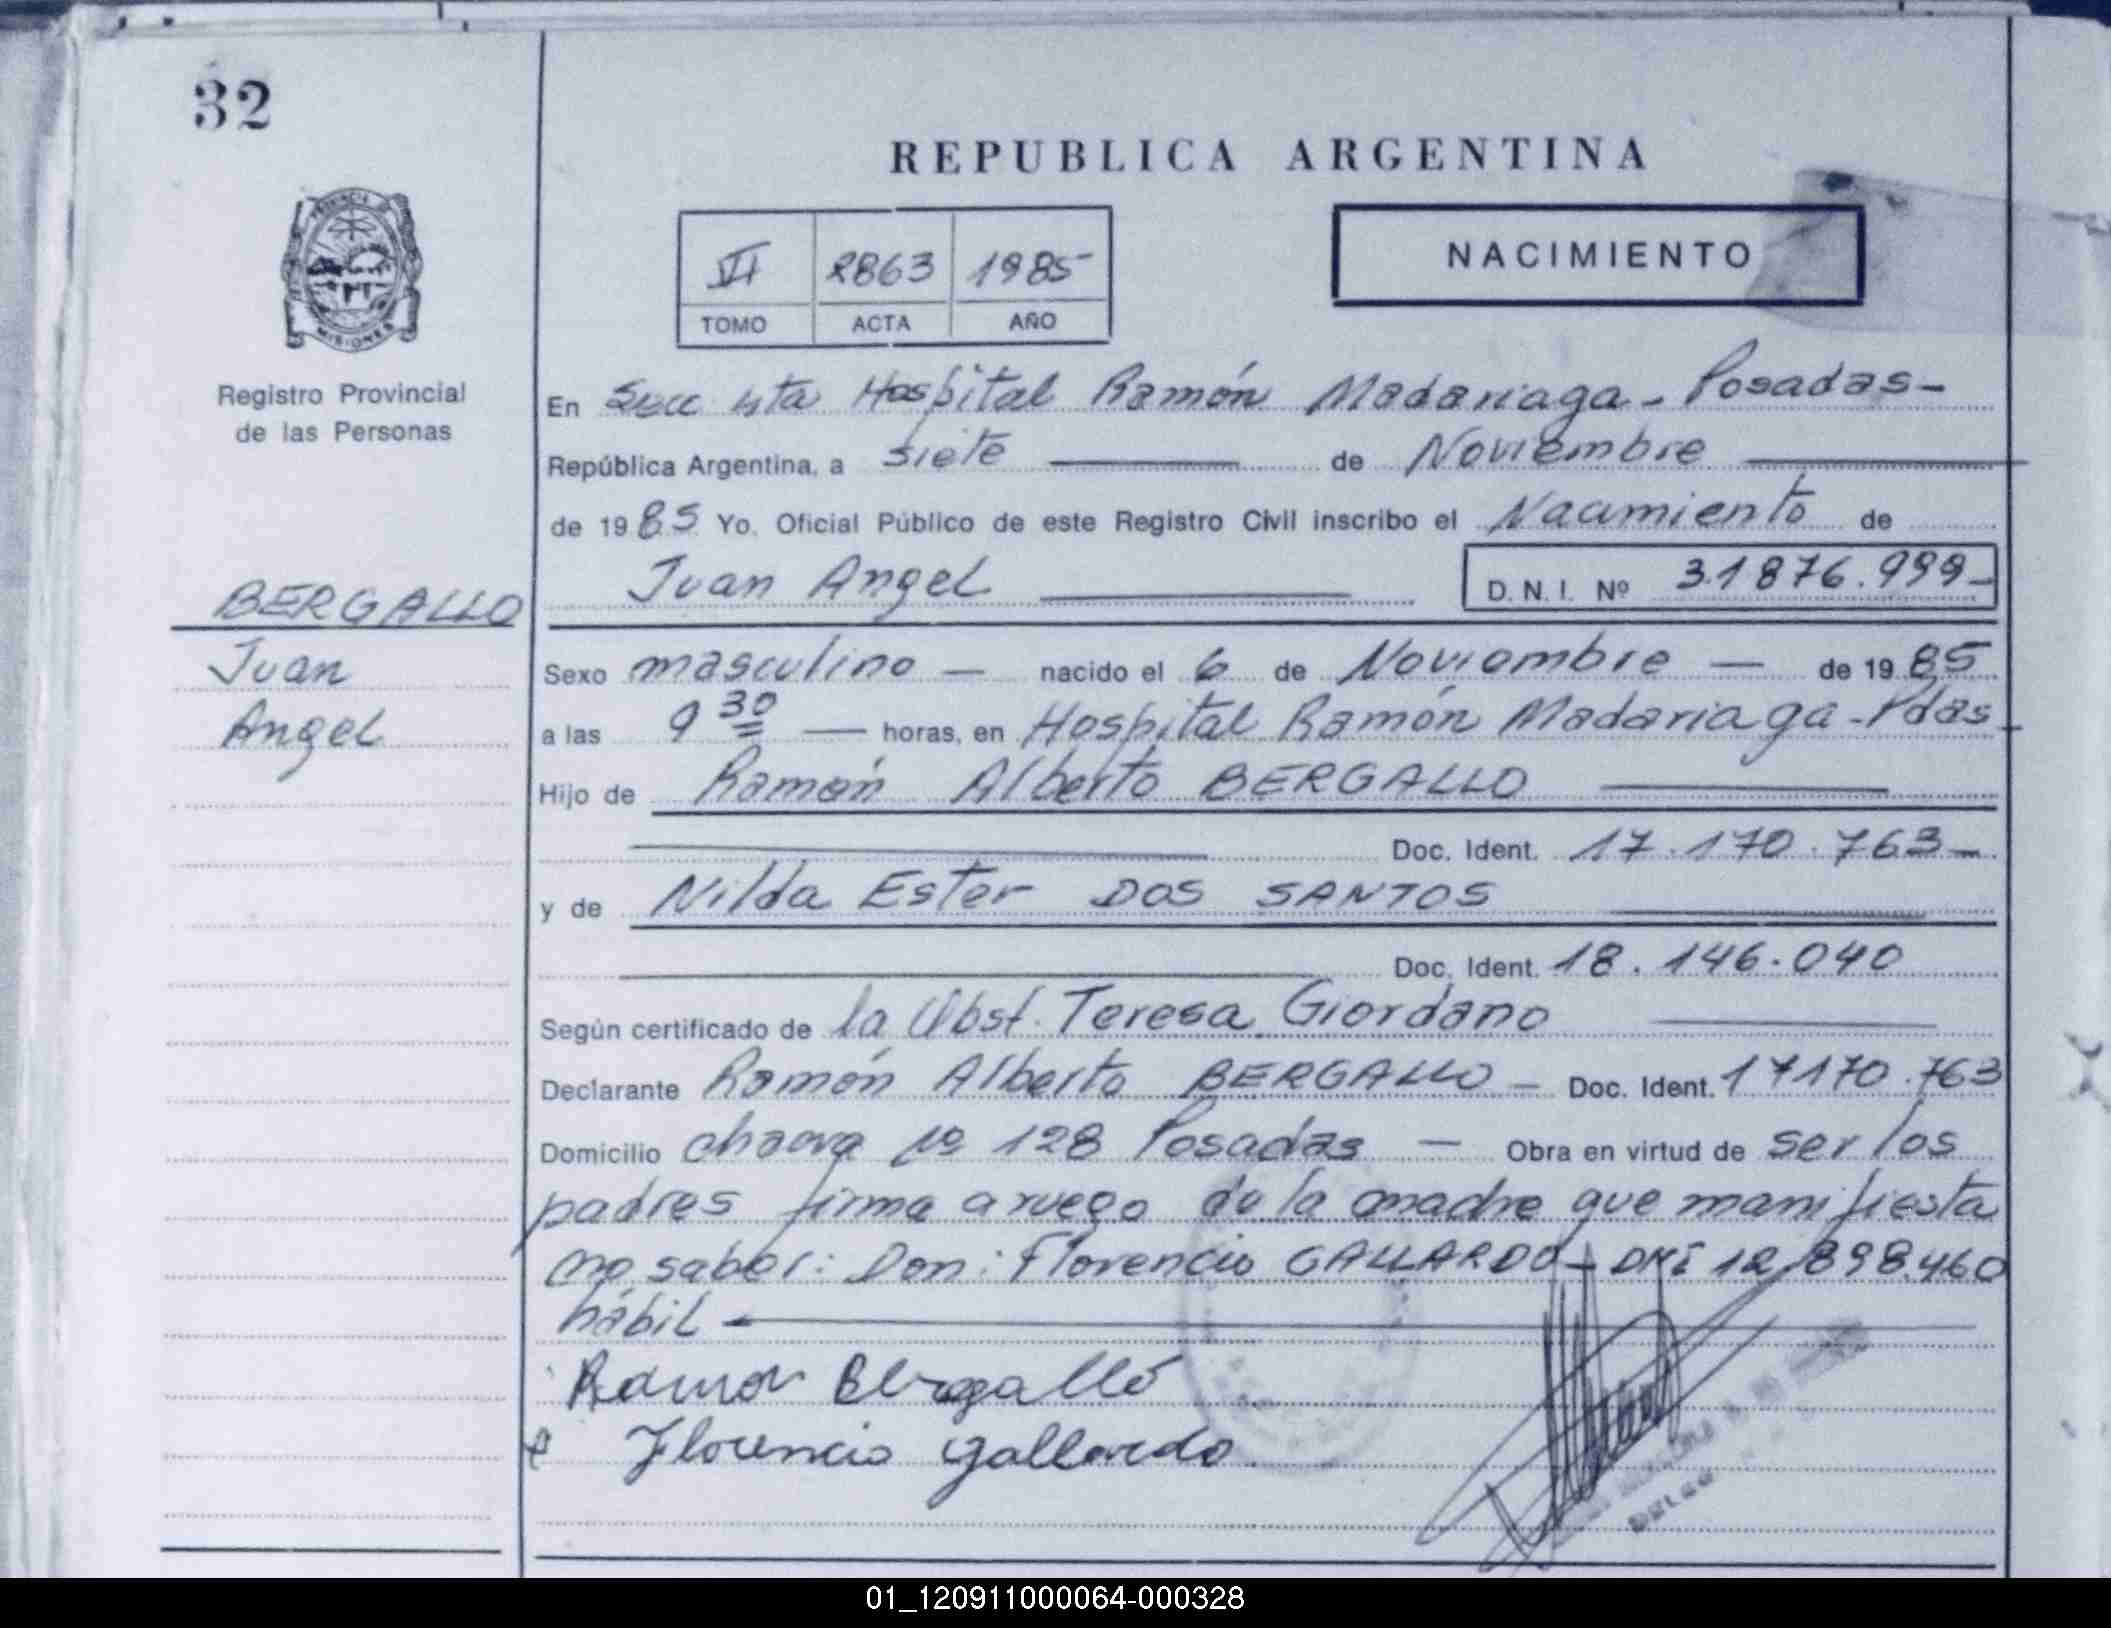 32
REPUBLICA ARGENTINA
NACIMIENTO
VI 2863 1985
TOMO ACTA AÑO
MISIONES
Registro Provincial
de las Personas
En Secc 4ta Hospital Ramón Madariaga - Posadas -
República Argentina, a siete de Noviembre
de 1985 Yo, Oficial Público de este Registro Civil inscribo el Nacimiento de
Juan Angel D. N. I. Nº 31876.999-
BERGALLO
Juan
Angel
Sexo masculino — nacido el 6 de Noviembre — de 1985
a las 9 30 — horas, en Hospital Ramón Madariaga - Pdas -
Hijo de Ramón Alberto BERGALLO
Doc. Ident. 17.170.763-
y de Nilda Ester DOS SANTOS
Doc. Ident. 18.146.040
Según certificado de la Obst. Teresa Giordano
Declarante Ramón Alberto BERGALLO - Doc. Ident. 17170.763
Domicilio chacra Nº 128 Posadas — Obra en virtud de ser los
padres firma a ruego de la madre que manifiesta
no saber: Don: Florencio GALLARDO - DNI 12.898.460
hábil -
Ramon Bergalló
Florencio Gallardo
01_120911000064-000328